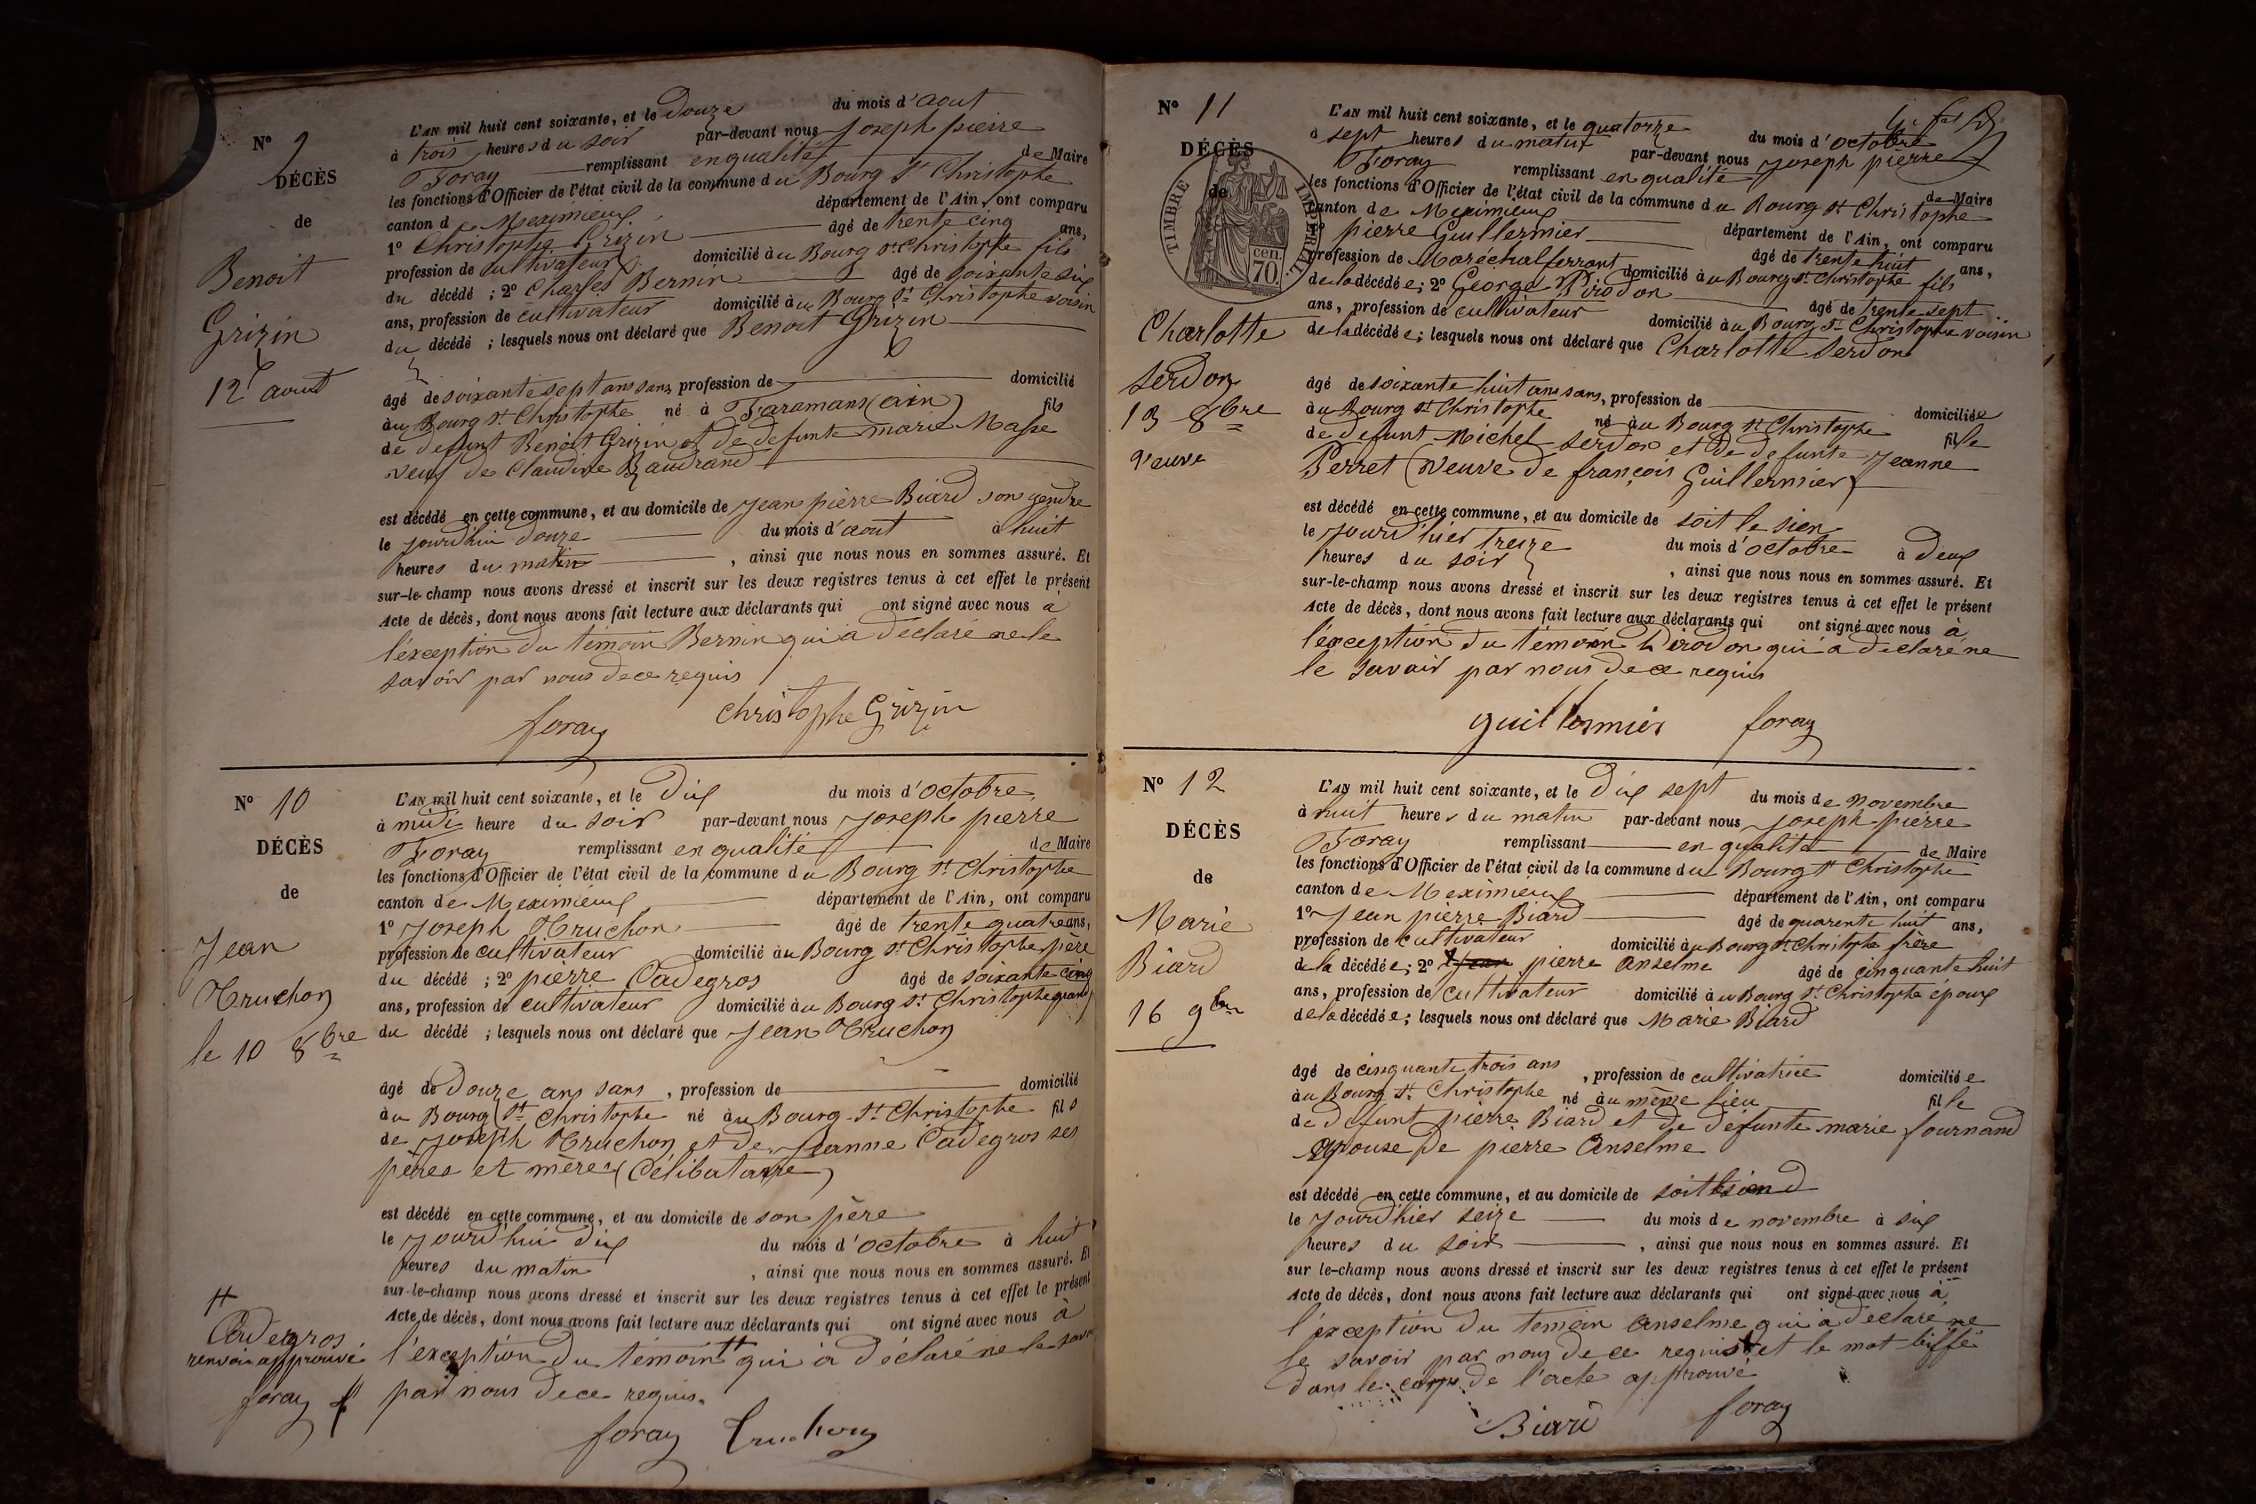 N° 9
DÉCÈS
de
Benoit
Grizin
12 aout
L'AN mil huit cent soixante, et le Douze du mois d'aout
à trois heures du soir par-devant nous Joseph pierre
Foray remplissant en qualité de Maire
les fonctions d'Officier de l'état civil de la commune du Bourg St Christophe
canton de Meximieux département de l'Ain, ont comparu
1° Christophe Grizin âgé de trente cinq ans,
profession de cultivateur domicilié au Bourg St Christophe fils
du décédé ; 2° Charles Bernin âgé de soixante six
ans, profession de cultivateur domicilié au Bourg St Christophe voisin
du décédé ; lesquels nous ont déclaré que Benoit Grizin
âgé de soixante sept ans sans, profession de domicilié
au Bourg St Christophe né à Faramans (ain) fils
de defunt Benoit Grizin et de defunte marie Masse
veuf de Claudine Baudrand
est décédé en cette commune, et au domicile de Jean pierre Biard son gendre
le jourd'hui douze du mois d'aout à huit
heures du matin , ainsi que nous nous en sommes assuré. Et
sur-le-champ nous avons dressé et inscrit sur les deux registres tenus à cet effet le présent
Acte de décès, dont nous avons fait lecture aux déclarants qui ont signé avec nous à
l'exception du témoin Bernin qui à déclaré ne le
savoir par nous de ce requis
foray Christophe Grizin
N° 10
DÉCÈS
de
Jean
Truchon
le 10 8bre
L'AN mil huit cent soixante, et le Dix du mois d'octobre
à midi heure du soir par-devant nous Joseph pierre
Foray remplissant en qualité de Maire
les fonctions d'Officier de l'état civil de la commune du Bourg St Christophe
canton de Meximieux département de l'Ain, ont comparu
1° Joseph Truchon âgé de trente quatre ans,
profession de cultivateur domicilié au Bourg St Christophe père
du décédé ; 2° pierre Cadegros âgé de soixante cinq
ans, profession de cultivateur domicilié au Bourg St Christophe grand
du décédé ; lesquels nous ont déclaré que Jean Truchon
âgé de Douze ans sans , profession de domicilié
au Bourg St Christophe né au Bourg St Christophe fils
de Joseph Truchon et de Jeanne Cadegros ses
pères et mères (Célibataire)
est décédé en cette commune, et au domicile de son père
le jourd'hui dix du mois d'octobre à huit
heures du matin , ainsi que nous nous en sommes assuré. Et
sur-le-champ nous avons dressé et inscrit sur les deux registres tenus à cet effet le présent
Acte de décès, dont nous avons fait lecture aux déclarants qui ont signé avec nous à
l'exception du témoin # qui à déclaré ne le savoir
par nous de ce requis.
# Cadegros
renvoi approuvé
foray
foray Truchon
N° 11
DÉCÈS
de
TIMBRE IMPÉRIAL
cen. 70.
Charlotte
Serdon
13 8bre
Veuve
L'AN mil huit cent soixante, et le quatorze du mois d'octobre
à sept heures du matin par-devant nous Joseph pierre
Foray remplissant en qualité de Maire
les fonctions d'Officier de l'état civil de la commune du Bourg St Christophe
canton de Meximieux département de l'Ain, ont comparu
1° pierre Guillermier âgé de trente huit ans,
profession de Maréchal ferrant domicilié au Bourg St Christophe fils
de la décédée; 2° George Pirodon âgé de trente sept
ans, profession de cultivateur domicilié au Bourg St Christophe voisin
de la décédée; lesquels nous ont déclaré que Charlotte Serdon
âgé de soixante huit ans sans, profession de domiciliée
au Bourg St Christophe né au Bourg St Christophe fille
de defunt Michel Serdon et de defunte Jeanne
Perret (Veuve de françois Guillermier)
est décédé en cette commune, et au domicile de soit le sien
le jourd'hier treize du mois d'octobre à deux
heures du soir , ainsi que nous nous en sommes assuré. Et
sur-le-champ nous avons dressé et inscrit sur les deux registres tenus à cet effet le présent
Acte de décès, dont nous avons fait lecture aux déclarants qui ont signé avec nous à
l'exception du témoin Pirodon qui à déclaré ne
le savoir par nous de ce requis
guillermier foray
N° 12
DÉCÈS
de
Marie
Biard
16 9bre
L'AN mil huit cent soixante, et le Dix sept du mois de novembre
à huit heures du matin par-devant nous Joseph pierre
Foray remplissant en qualité de Maire
les fonctions d'Officier de l'état civil de la commune du Bourg St Christophe
canton de Meximieux département de l'Ain, ont comparu
1° Jean pierre Biard âgé de quarente huit ans,
profession de cultivateur domicilié au Bourg St Christophe frère
de la décédée; 2° Jean pierre Anselme âgé de cinquante huit
ans, profession de cultivateur domicilié au Bourg St Christophe époux
de la décédée; lesquels nous ont déclaré que Marie Biard
âgé de cinquante trois ans , profession de cultivatrice domiciliée
au Bourg St Christophe né au même lieu fille
de defunt pierre Biard et de défunte marie fournand
epouse de pierre Anselme
est décédé en cette commune, et au domicile de soit
le jourd'hier seize du mois de novembre à six
heures du soir , ainsi que nous nous en sommes assuré. Et
sur le-champ nous avons dressé et inscrit sur les deux registres tenus à cet effet le présent
Acte de décès, dont nous avons fait lecture aux déclarants qui ont signé avec nous à
l'exception du temoin Anselme qui à déclaré ne
le savoir par nous de ce requis et le mot biffé
dans le corps de l'acte approuvé
Biard foray